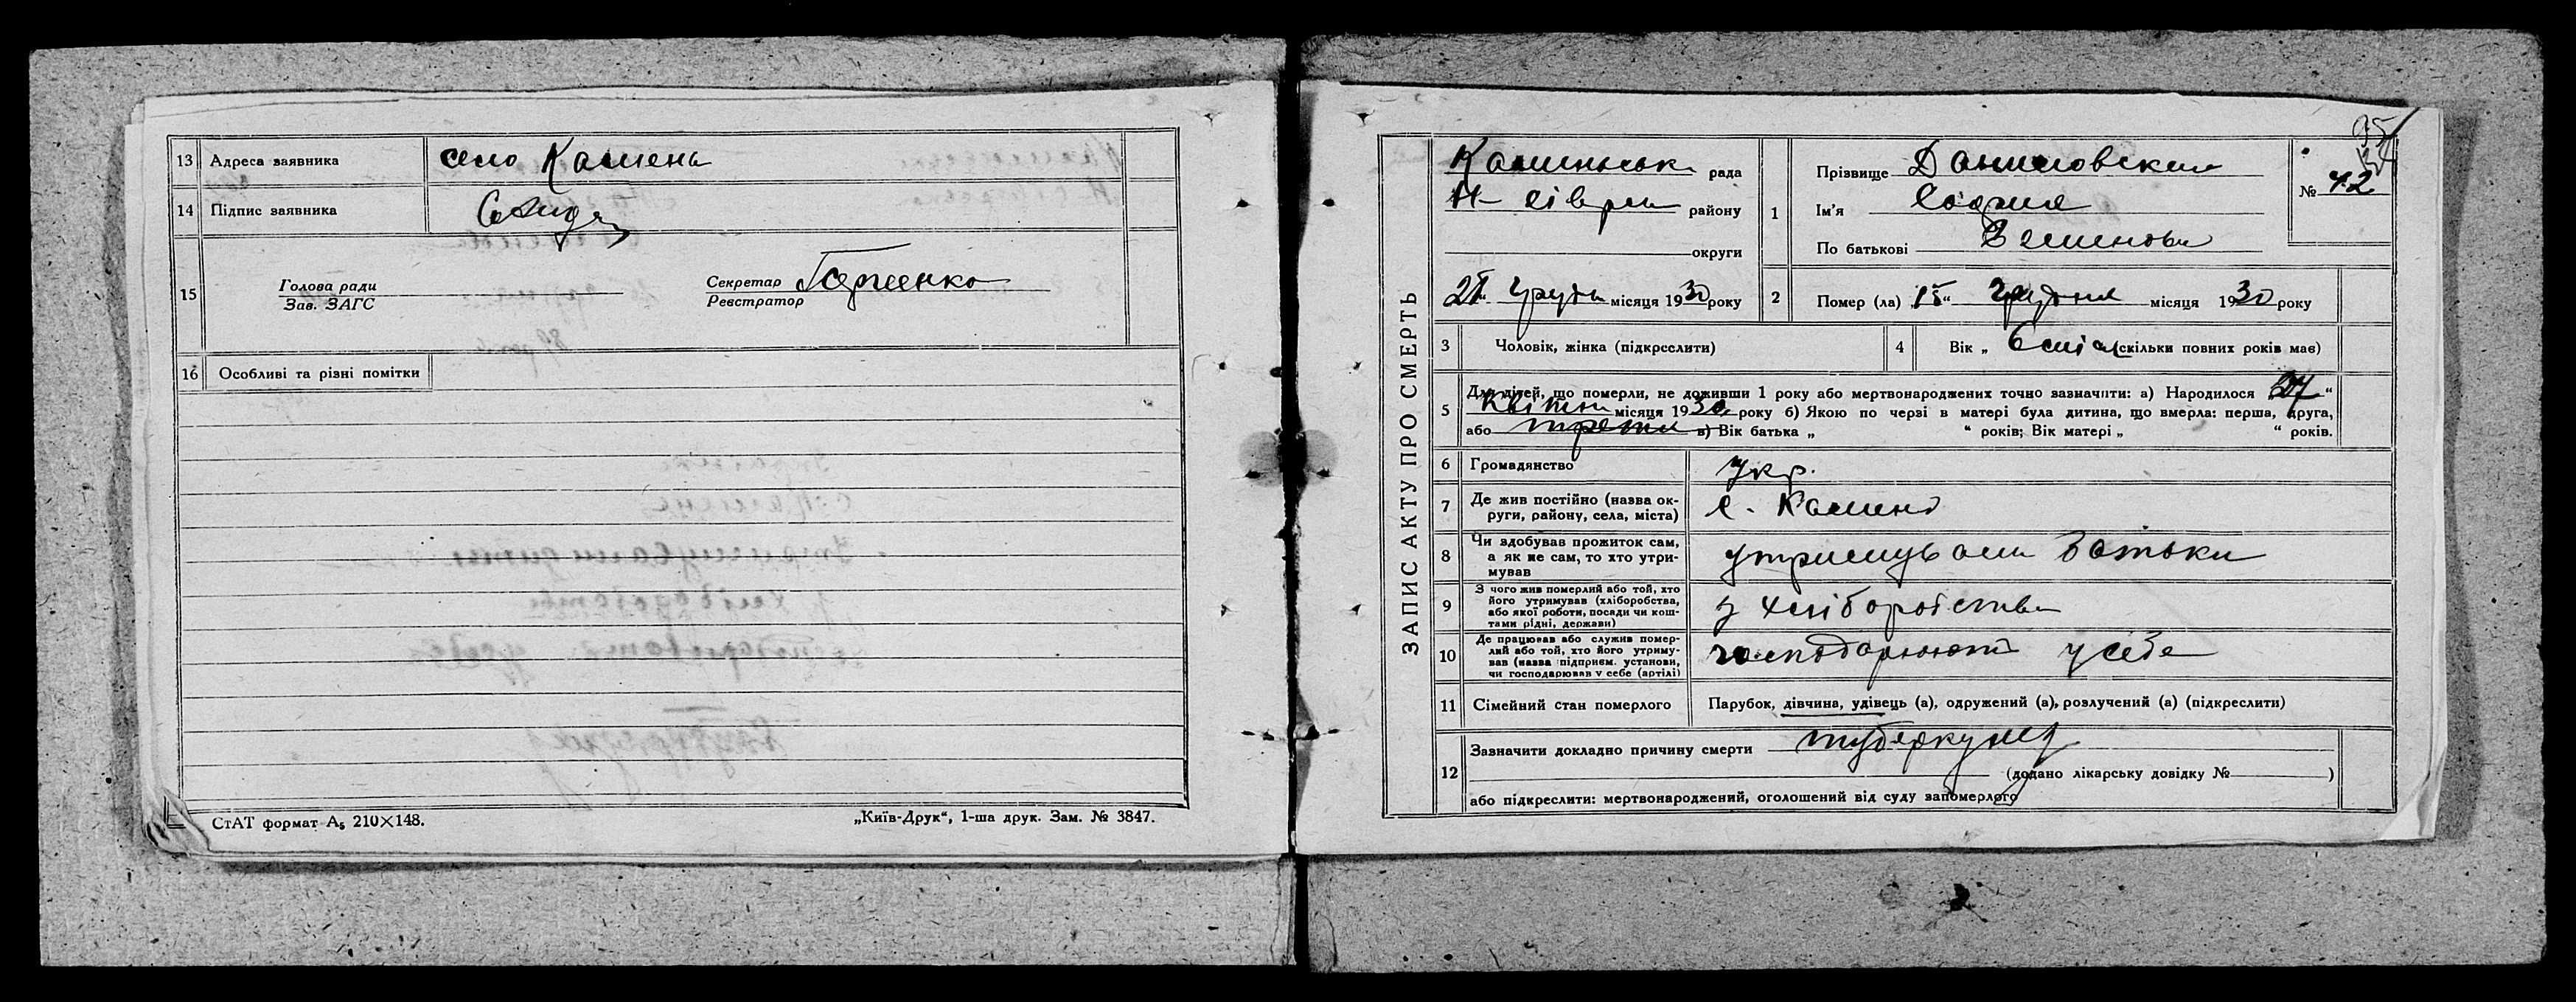 13 Адреса заявника село Камень
14 Підпис заявника
15 Голова ради
Зав. ЗАГС
Секретар
Реєстратор
16 Особливі та різні помітки
СтАТ формат А₅ 210×148.
„Київ-Друк“, 1-ша друк. Зам. № 3847.
ЗАПИС АКТУ ПРО СМЕРТЬ
Каминьськ рада
Н- Сіверск району
округи
місяця 1930 року
1 Прізвище Даниловская
Ім'я София
По батькові
№ 42
2 Помер (ла) „15“ Грудня місяця 1930 року
3 Чоловік, жінка (підкреслити)
4 Вік „ 6 міс (скільки повних років має)
5 Для дітей, що померли, не доживши 1 року або мертвонароджених точно зазначити: а) Народилося „27“
Квітня місяця 1930 року б) Якою по черзі в матері була дитина, що вмерла: перша, друга,
або третя в) Вік батька „ “ років; Вік матері „ “ років.
6 Громадянство Укр.
7 Де жив постійно (назва округи, району, села, міста) с. Камень
8 Чи здобував прожиток сам, а як не сам, то хто утримував утримували батьки
9 З чого жив померлий або той, хто його утримував (хліборобства, або якої роботи, посади чи коштами рідні, держави) з хліборобства
10 Де працював або служив померлий або той, хто його утримував (назва підприєм. установи, чи господарював у себе (артілі) господарюють у себе
11 Сімейний стан померлого Парубок, дівчина, удівець (а), одружений (а), розлучений (а) (підкреслити)
12 Зазначити докладно причину смерти туберкульоз
(додано лікарську довідку № )
або підкреслити: мертвонароджений, оголошений від суду запомерлого